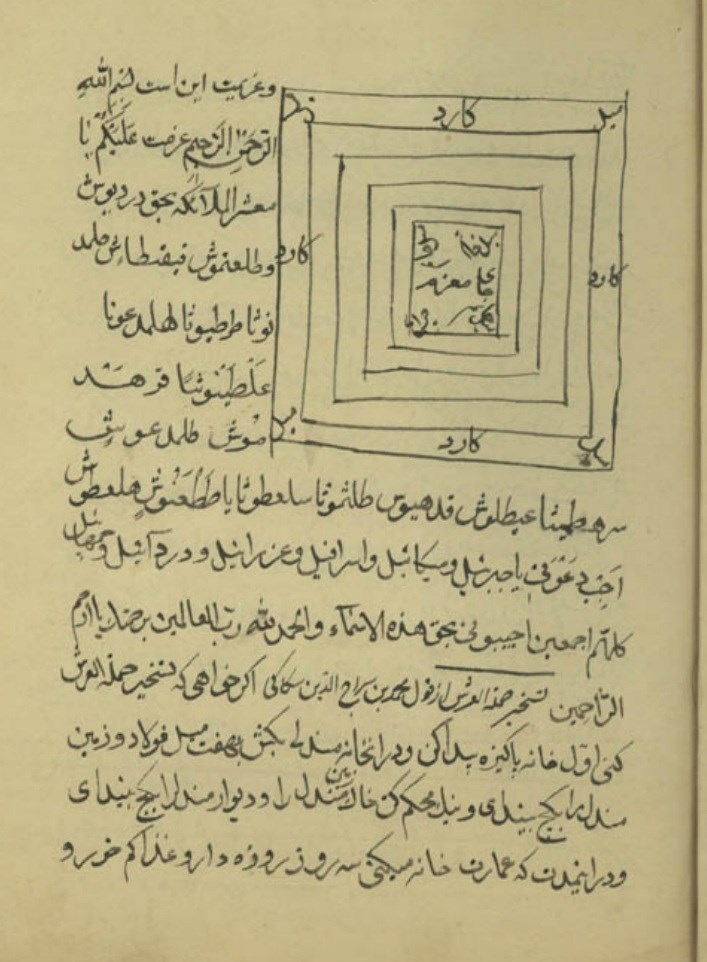 وعزیمت این است بسم الله
الرحمن الرحیم عزمت علیکم یا
معشر الملائکه بحق دردیوش
وطلعنموش فیقطاش طلمد
نوثا طرطیوثا لهلمد عونا
عَلْطَیَنُوثَا فَرهَد
مُوش طلمد عوش
کارد
میل
کارد
کارد
کارد
سرهطیثا عیطلوش قدهیوس طلثموثا سلعطوثا یا طَطْعَنُوشٍ هلعطوش
اجب دعوتی یا جبرئیل و میکائیل و اسرافیل و عزرائیل و دردآئیل و
کلهم اجمعین اجیبونی بحق هذه الاسماء والحمد لله رب العالمین برحمتک یا ارحم
الراحمین تسخیر حملة العرش از قول محمد بن سراج الدین سکاکی اگر خواهی که تسخیر حملة العرش
کنی اول خانه پاکیزه پیدا کن و در انخانه مندلی بکش بهفت میل فولاد و زمین
مندل را بگچ بیندای و نیک محکم کن خانه مندل را و دیوار مندل را بگچ بیندای
و در اینمدت که عمارت خانه میکنی سه روز روزه دار و غذا کم خور و